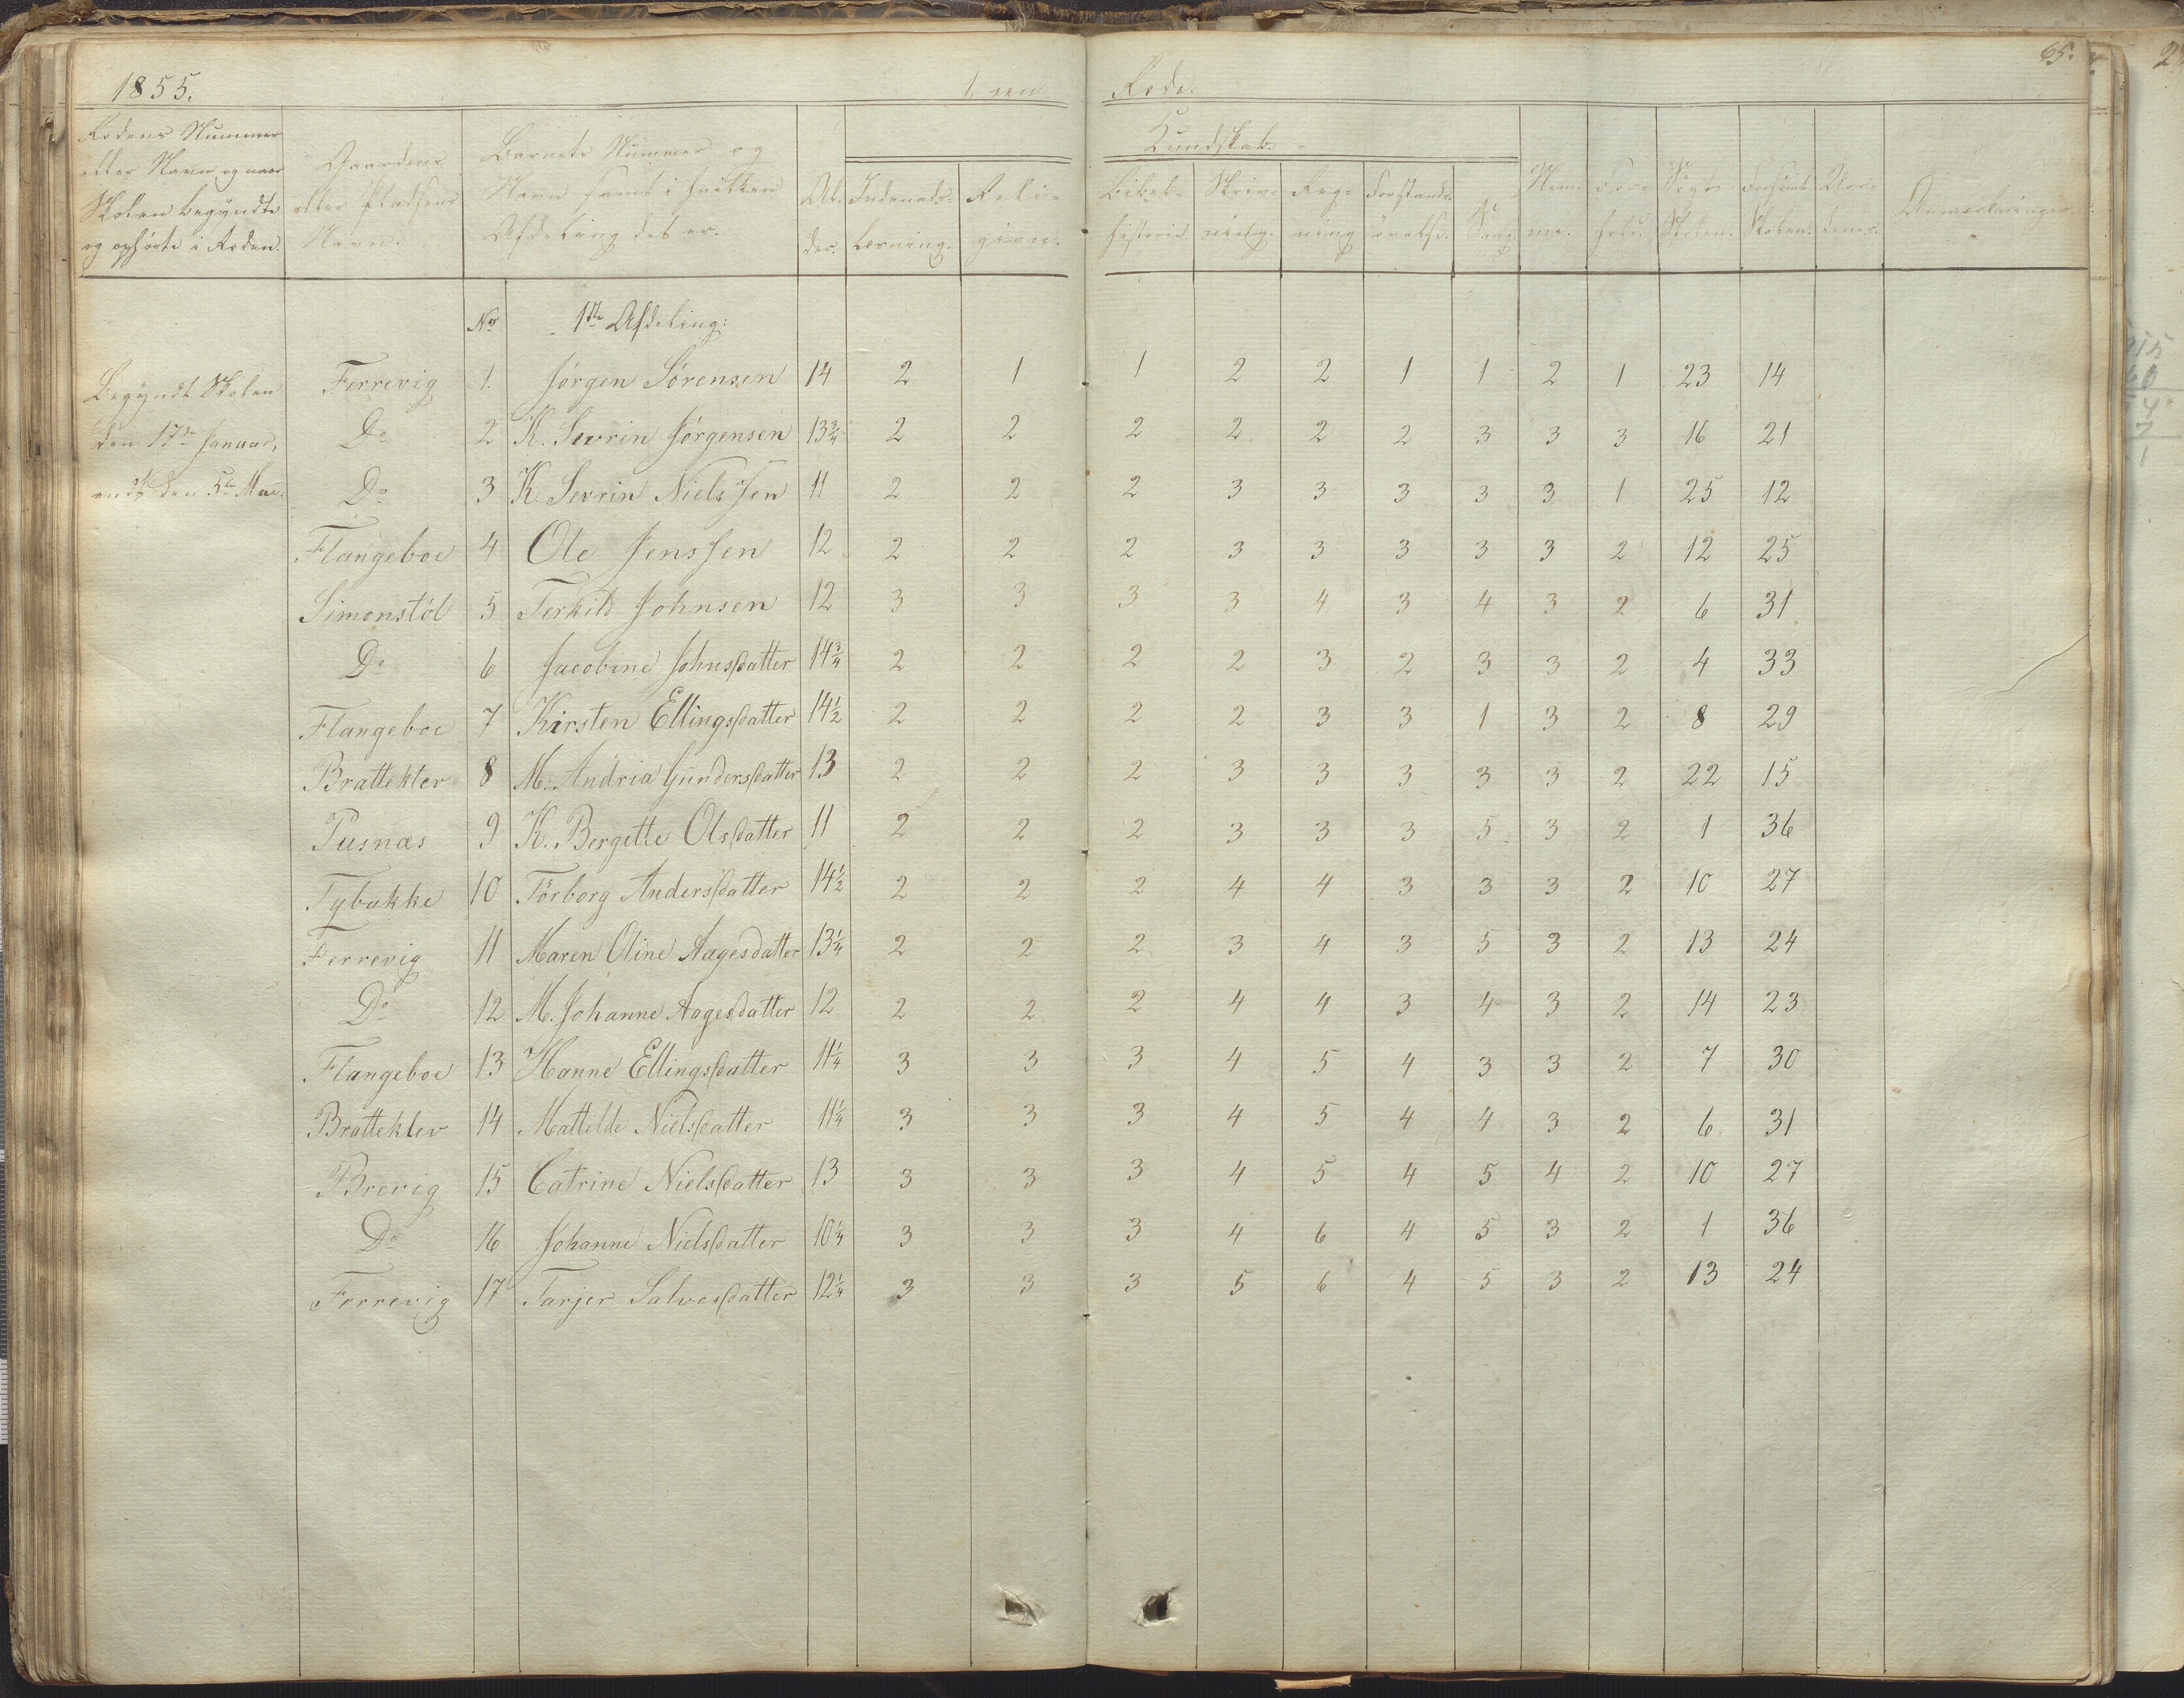 65.
1855. 1. ten Rode.
Rodens Nummer
eller Navn og naar
Skolen begyndte
og ophørte i Roden.
Gaardens
eller Pladsens
Navn.
Barnets Nummer og
Navn samt i hvilken
Afdeling det er.
Al-
der.
Kundskab
Indenads-
Læsning.
Reli-
gion.
Bibel-
historie
Skriv-
ning.
Reg-
ning
Forstands-
øvelse.
Sang.
Søgt
Skolen.
Forsømt
Skolen.
Anmærkninger.
No 1ste Afdeling:
Begyndt Skolen
den 17de Januar,
endt den 5te Mai.
Ferrevig 1. Jørgen Sørensen 14 2 1 1 2 2 1 1 2 1 23 14
Do 2 K. Sevrin Jørgensen 13¾ 2 2 2 2 2 2 3 3 3 16 21
Do 3 K. Sevrin Nielssen 11 2 2 2 3 3 3 3 3 1 25 12
Flangeboe 4 Ole Jenssen 12 2 2 2 3 3 3 3 3 2 12 25
Simonstöl 5 Terkild Johnsen 12 3 3 3 3 4 3 4 3 2 6 31
Do 6 Jacobine Johnsdatter 14¾ 2 2 2 2 3 2 3 3 2 4 33
Flangeboe 7 Kirsten Ellingsdatter 14½ 2 2 2 2 3 3 1 3 2 8 29
Bratteklev 8 M. Andria Gundersdatter 13 2 2 2 3 3 3 3 3 2 22 15
Pusnæs 9 K. Bergette Olsdatter 11 2 2 2 3 3 3 5 3 2 1 36
Tybakke 10 Törborg Andersdatter 14½ 2 2 2 4 4 3 3 3 2 10 27
Ferrevig 11 Maren Oline Aagesdatter 13¼ 2 2 2 3 4 3 5 3 2 13 24
Do 12 M. Johanne Aagesdatter 12 2 2 2 4 4 3 4 3 2 14 23
Flangeboe 13 Hanne Ellingsdatter 11¼ 3 3 3 4 5 4 3 3 2 7 30
Bratteklev 14 Mattelde Nielsdatter 11¼ 3 3 3 4 5 4 4 3 2 6 31
Brevig 15 Catrine Nielsdatter 13 3 3 3 4 5 4 5 4 2 10 27
Do 16 Johanne Nielsdatter 10¼ 3 3 3 4 6 4 5 3 2 1 36
Ferrevig 17 Tarjer Salvesdatter 12¼ 3 3 3 5 6 4 5 3 2 13 24